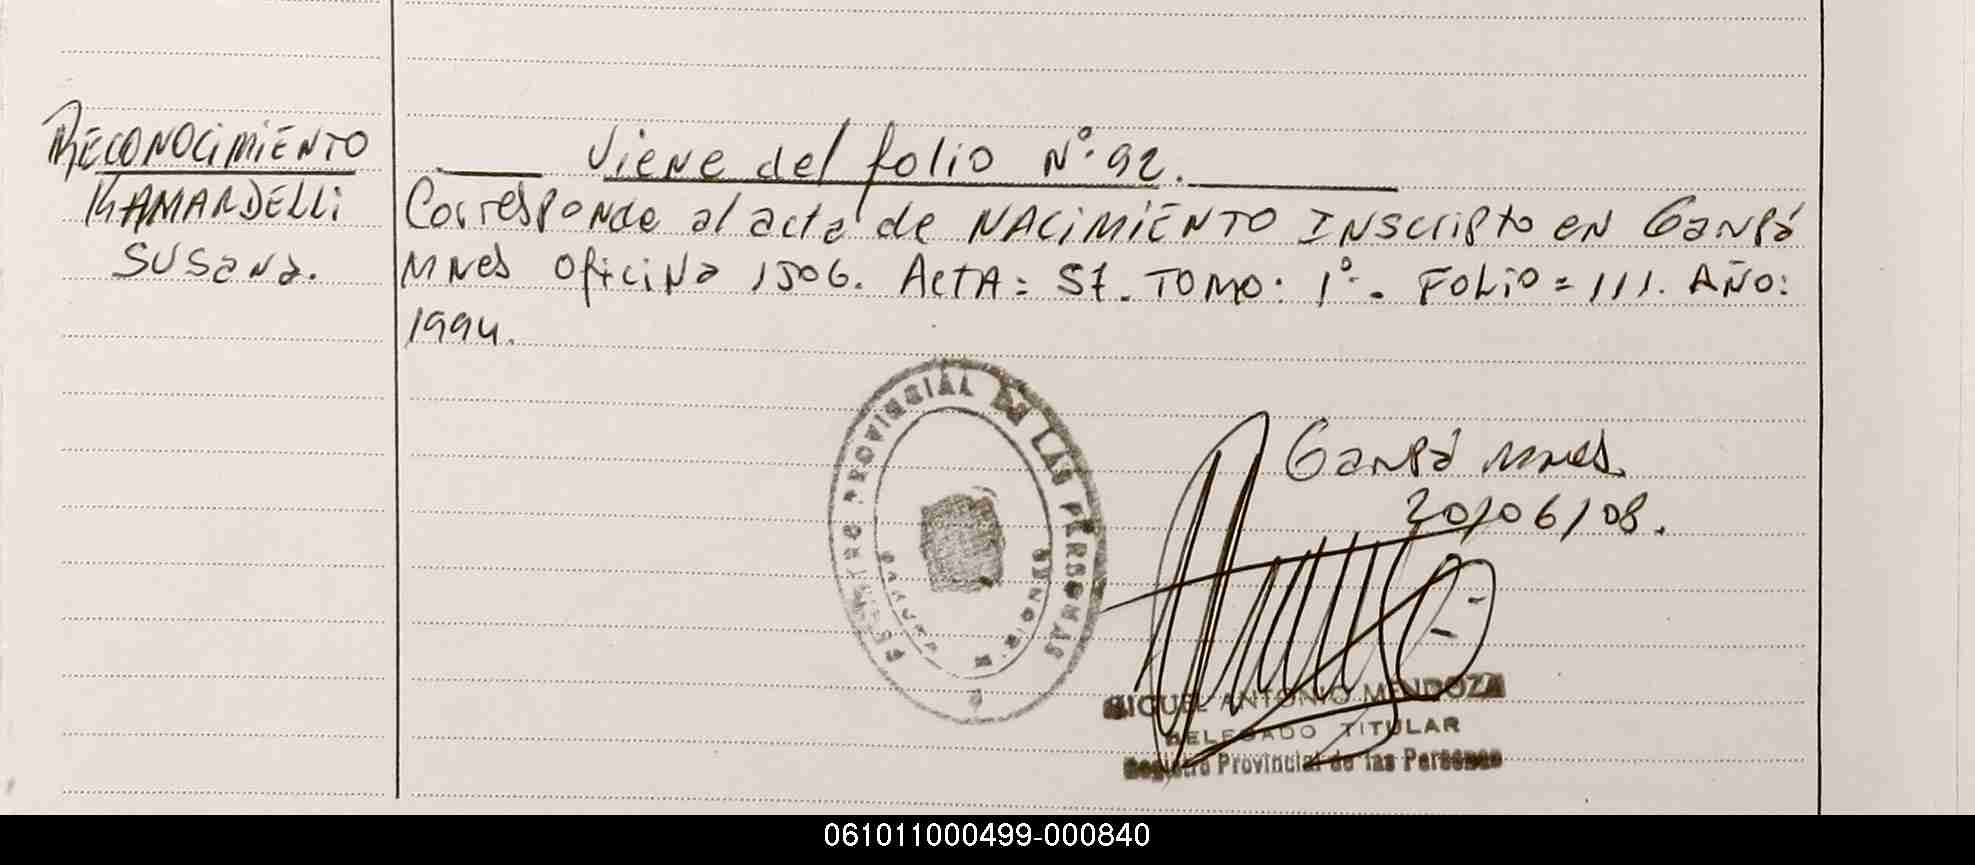 RECONOCIMIENTO
KAMARDELLI
SUSANA.
Viene del folio Nº 92.
Corresponde al acta de NACIMIENTO INScripto en Garupá
Mnes Oficina 1506. ActA: 57. TOMO: 1º. FOLIO = 111. AÑO:
1994.
REGISTRO PROVINCIAL DE LAS PERSONAS
Garupá Mnes.
20/06/08.
MIGUEL ANTONIO MENDOZA
DELEGADO TITULAR
Registro Provincial de las Personas
061011000499-000840